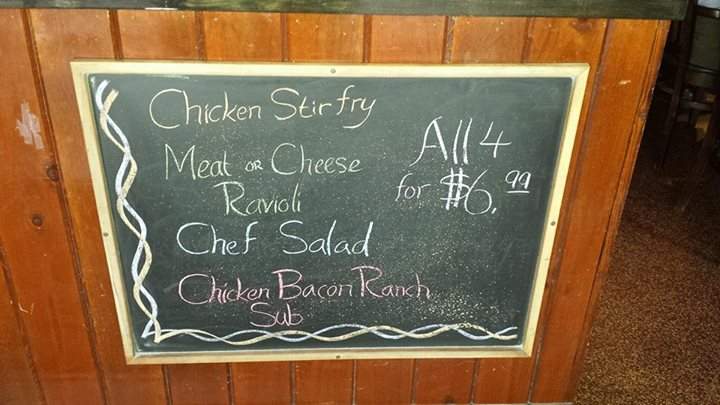 Chicken Stir fry
Meat or Cheese
Ravioli
Chef Salad
Chicken Bacon Ranch
Sub
All 4
for $6.99